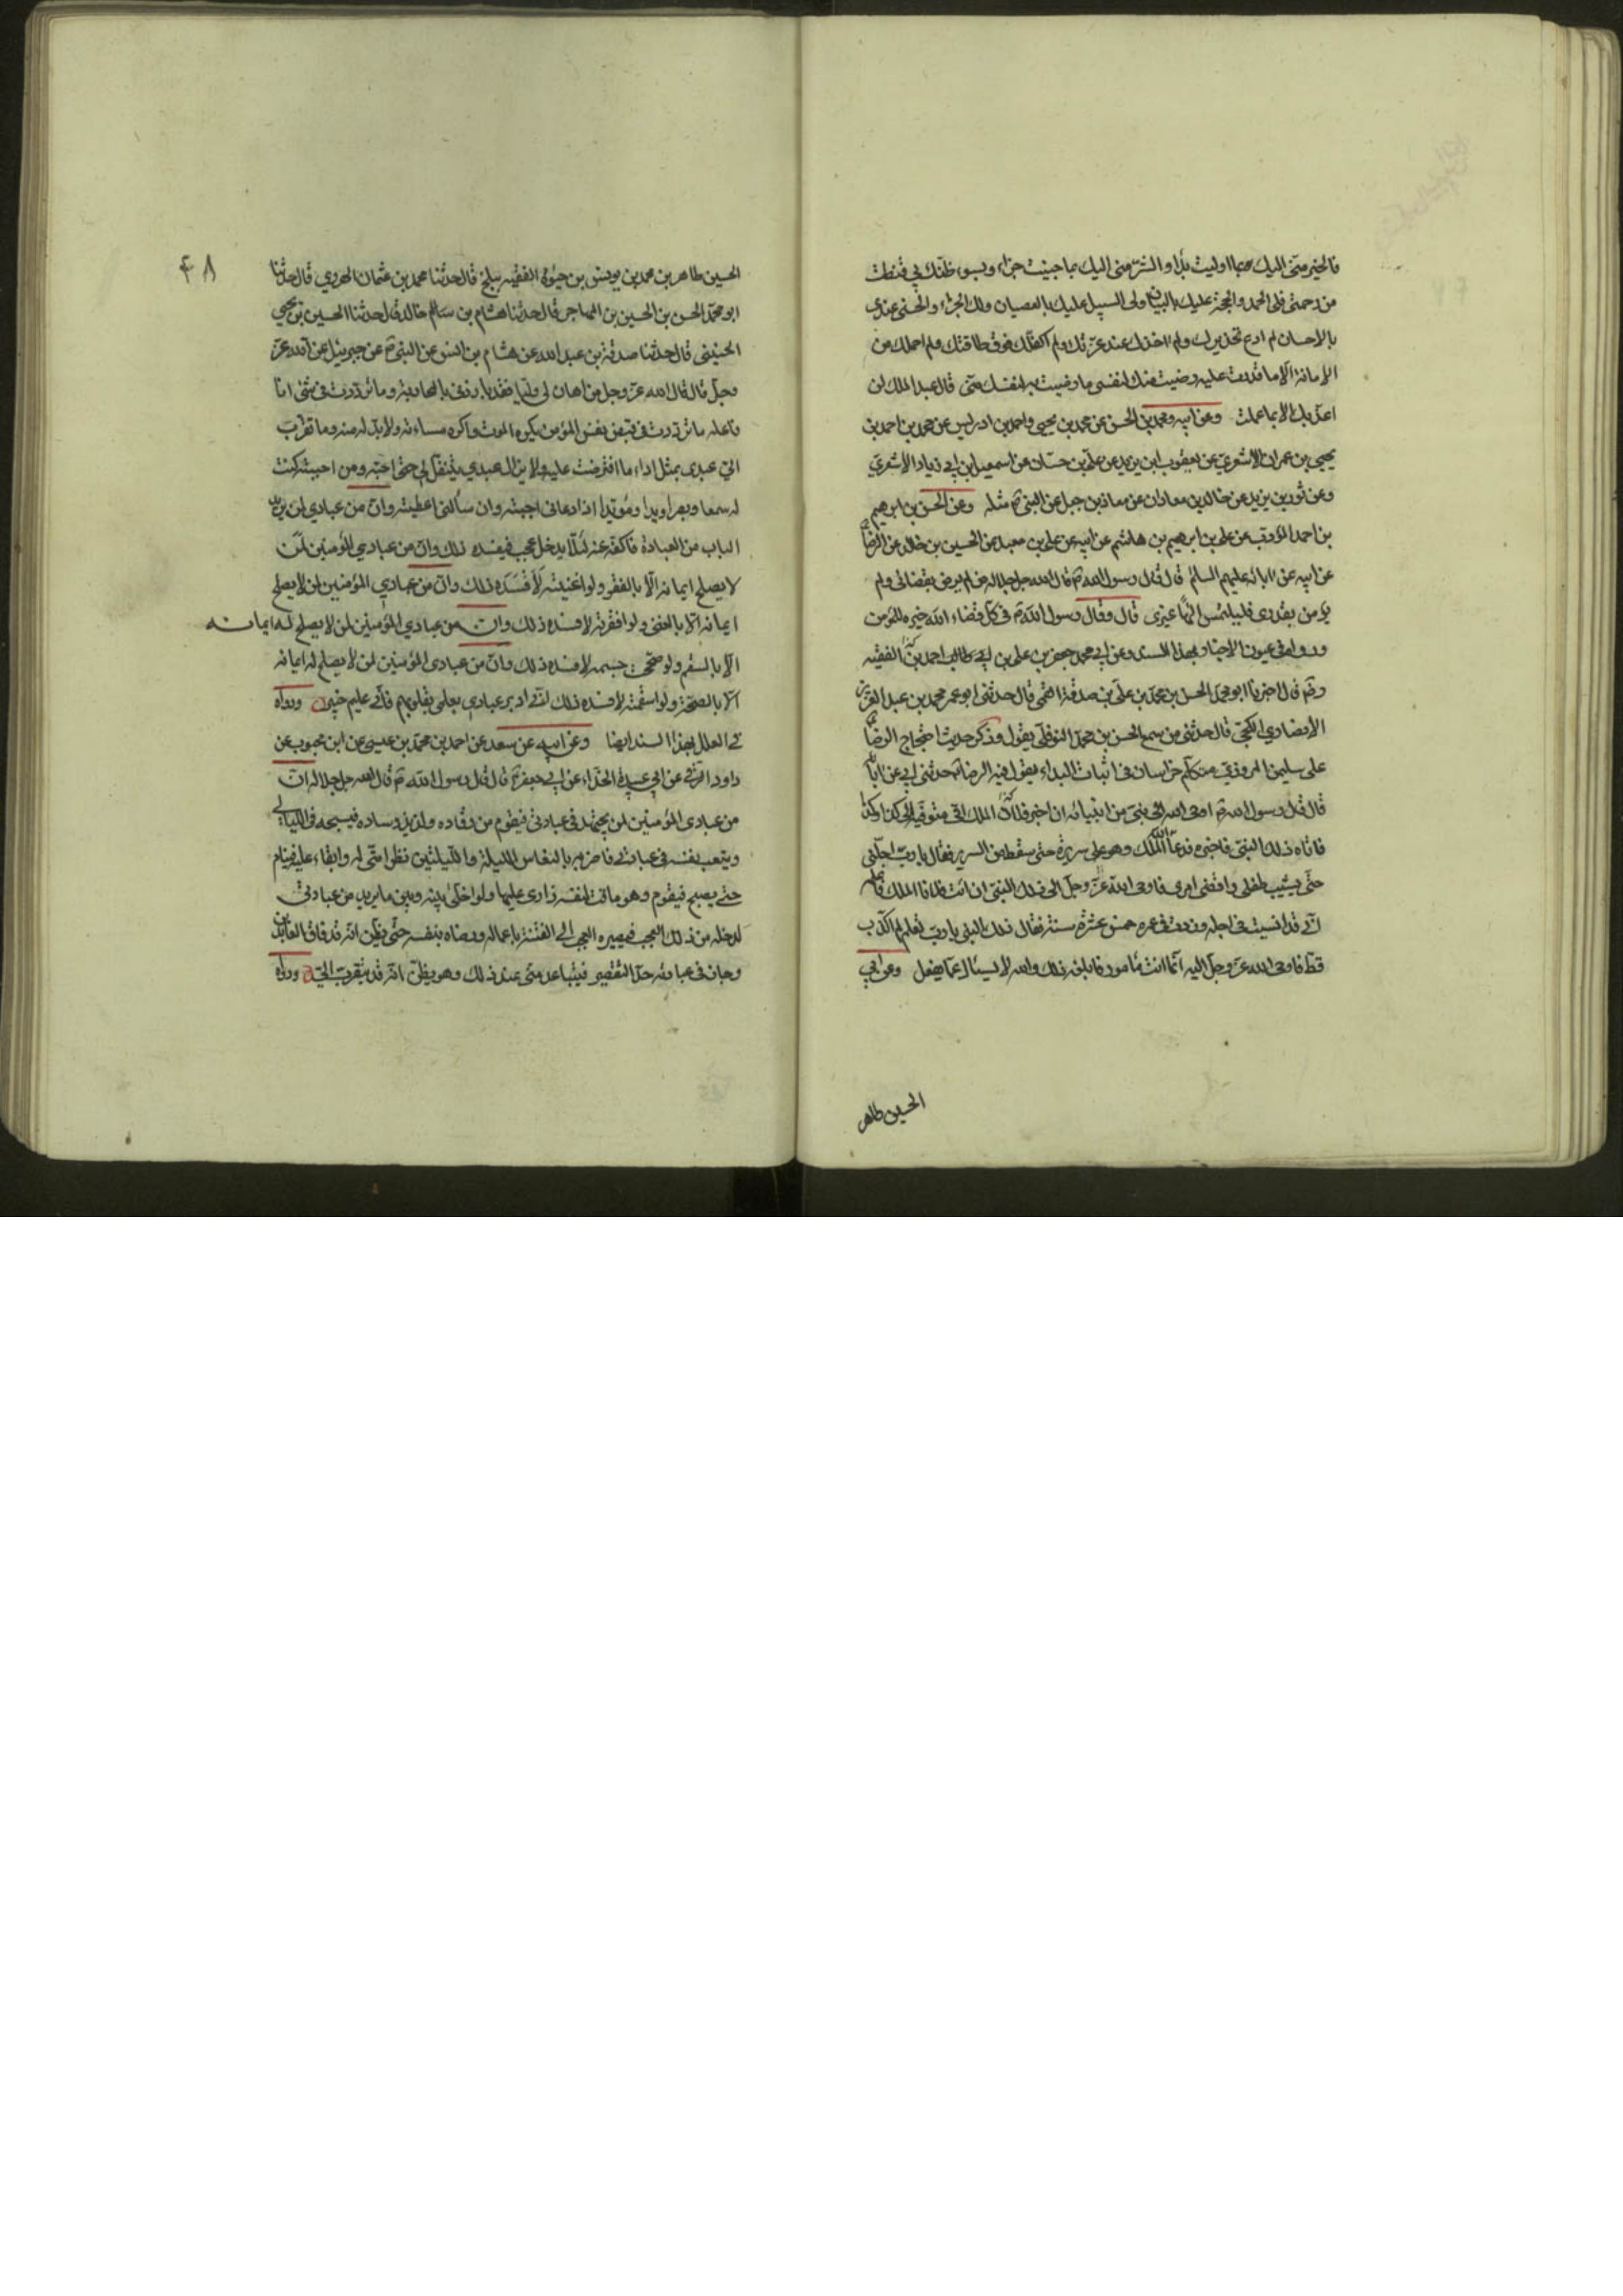 فالخير منّي اليك بما اوليت بدا والشرّ منّي اليك بما جنيت جزاء وبسوء ظنّك بي قنطت
من رحمتي فلي الحمد والحجة عليك بالبيان ولي السبيل عليك بالعصيان ولك الجزاء والحسنى عندي
بالاحسان لم ادع تحذيرك ولم اخذك عند عزتك ولم اكلفك فوق طاقتك ولم احملك من
الامانة الا ما قدرت عليه رضيت منك لنفسي ما رضيت به لنفسك منّي قال عبد الملك لن
اعذبك الا بما عملت وعن ابيه ومحمد بن الحسن عن محمد بن يحيى واحمد بن ادريس عن محمد بن احمد بن
يحيى بن عمران الاشعري عن يعقوب بن يزيد عن علي بن حسان عن اسمعيل بن ابي زياد الاشعري
وعن ثور بن يزيد عن خالد بن معدان عن معاذ بن جبل عن النبي ص مثله وعن الحسن بن ابرهيم
بن احمد المؤدب عن علي بن ابرهيم بن هاشم عن ابيه عن علي بن معبد عن الحسين بن خالد عن الرضا
عن ابيه عن ابائه عليهم السلم قال قال رسول الله ص قال الله جل جلاله من لم يرض بقضائي ولم
يؤمن بقدري فليلتمس الها غيري قال وقال رسول الله ص في كل قضاء الله خيرة للمؤمن
ورواه في عيون الاخبار بهذا السند وعن ابي محمد جعفر بن علي بن احمد الفقيه
رض قال اخبرنا ابو محمد الحسن بن محمد بن علي بن صدقة القمي قال حدثني ابو عمر محمد بن عمر بن عبد العزيز
الانصاري الكجي قال حدثني من سمع الحسن بن محمد النوفلي يقول وذكر حديث احتجاج الرضا
على سليمن المروزي متكلم خراسان في اثبات البداء يقول فيه الرضا حدثني ابي عن ابائه
قال قال رسول الله ص اوحى الله الى نبي من انبيائه ان اخبر فلان الملك اني متوفيه الى كذا وكذا
فاتاه ذلك النبي فاخبره فدعا الله الملك وهو على سريره حتى سقط من السرير فقال يا رب اجلني
حتى يشيب طفلي واقضي امري فاوحى الله عز وجل الى ذلك النبي ان ائت فلانا الملك فاعلمه
اني قد انسيت في اجله وزدت في عمره خمس عشرة سنة فقال ذلك النبي يا رب لتعلم لم اكذب
قط فاوحى الله عز وجل اليه انما انت عبد مامور فابلغه ذلك والله لا يسئل عما يفعل وعن ابي
الحسين طاهر
٤٨
الحسين طاهر بن محمد بن يونس بن حيوة الفقيه ببلخ قال حدثنا محمد بن عثمان الهروي قال حدثنا
ابو محمد الحسن بن الحسين بن المهاجر قال حدثنا هشام بن خالد قال حدثنا الحسين بن يحيى
الحنيني قال حدثنا صدقة بن عبد الله عن هشام بن انس عن النبي ص عن جبريل عن الله عز
وجل قال قال الله عز وجل من اهان لي وليا فقد بارزني بالمحاربة وما ترددت في شئ انا
فاعله ما ترددت في قبض نفس المؤمن يكره الموت واكره مساءته ولا بد له منه وما تقرب
الي عبدي بمثل اداء ما افترضت عليه ولا يزال عبدي يتنفل لي حتى احبه ومن احببته كنت
له سمعا وبصرا ويدا ومؤيدا ان دعاني اجبته وان سألني اعطيته وان من عبادي لمن يريد
الباب من العبادة فاكفه عنه لئلا يدخله عجب فيفسده ذلك وان من عبادي المؤمنين لمن
لا يصلح ايمانه الا بالفقر ولو اغنيته لافسده ذلك وان من عبادي المؤمنين لمن لا يصلح
ايمانه الا بالغنى ولو افقرته لافسده ذلك وان من عبادي المؤمنين لمن لا يصلح له ايمانه
الا بالسقم ولو صححت جسمه لافسده ذلك وان من عبادي المؤمنين لمن لا يصلح له ايمانه
الا بالصحة ولو اسقمته لافسده ذلك اني ادبر عبادي بعلمي بقلوبهم فاني عليم خبير ورواه
في العلل بهذا السند ايضا وعن ابيه عن سعد عن احمد بن محمد بن عيسى عن ابن محبوب عن
داود الرقي عن ابي عبيدة الحذاء عن ابي جعفر ع قال قال رسول الله ص قال الله جل جلاله ان
من عبادي المؤمنين لمن يجتهد في عبادتي فيقوم من رقاده ولذيذ وساده فيتهجد في الليالي
ويتعب نفسه في عبادتي فاضربه بالنعاس الليلة والليلتين نظرا مني له وابقاء عليه فينام
حتى يصبح فيقوم وهو ماقت لنفسه زاري عليها ولو اخلي بينه وبين ما يريد من عبادتي
لدخله من ذلك العجب فيصيره العجب الى الفتنة باعماله ورضاه بنفسه حتى يظن انه قد فاق العابدين
وجاز في عبادته حد التقصير فيتباعد مني عند ذلك وهو يظن انه قد يتقرب الي ورواه